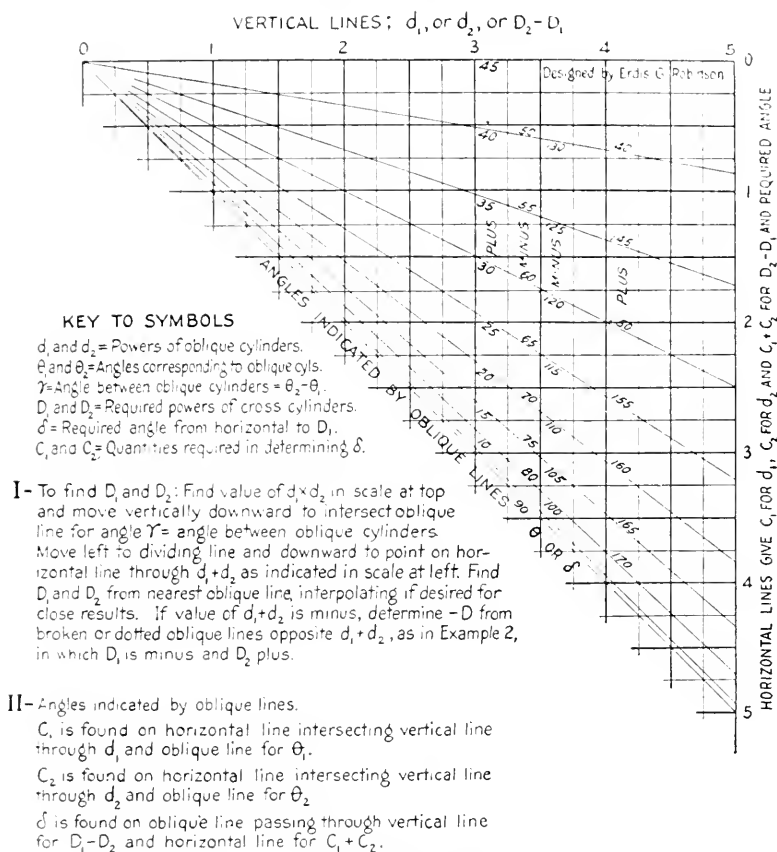 VERTICAL LINES; d₁, or d₂, or D₂-D₁
0 1 2 3 4 5
Designed by Erdis G. Robinson
0
1
2
3
4
5
HORIZONTAL LINES GIVE C₁ FOR d₁, C₂ FOR d₂ AND C₁+C₂ FOR D₂-D₁ AND REQUIRED ANGLE
45
40 50 130 140
35 55 125 145
PLUS MINUS MINUS PLUS
30 60 120 150
25 65 115 155
20 70 110 160
15 75 105 165
10 80 100 170
90
ANGLES INDICATED BY OBLIQUE LINES θ OR δ
KEY TO SYMBOLS
d₁ and d₂ = Powers of oblique cylinders.
θ₁ and θ₂ = Angles corresponding to oblique cyls.
γ = Angle between oblique cylinders = θ₂-θ₁.
D₁ and D₂ = Required powers of cross cylinders.
δ = Required angle from horizontal to D₁.
C₁ and C₂ = Quantities required in determining δ.
I - To find D₁ and D₂: Find value of d₁×d₂ in scale at top
and move vertically downward to intersect oblique
line for angle γ = angle between oblique cylinders.
Move left to dividing line and downward to point on hor-
izontal line through d₁+d₂ as indicated in scale at left. Find
D₁ and D₂ from nearest oblique line, interpolating if desired for
close results. If value of d₁+d₂ is minus, determine -D from
broken or dotted oblique lines opposite d₁+d₂, as in Example 2,
in which D₁ is minus and D₂ plus.
II - Angles indicated by oblique lines.
C₁ is found on horizontal line intersecting vertical line
through d₁ and oblique line for θ₁.
C₂ is found on horizontal line intersecting vertical line
through d₂ and oblique line for θ₂
δ is found on oblique line passing through vertical line
for D₁-D₂ and horizontal line for C₁+C₂.